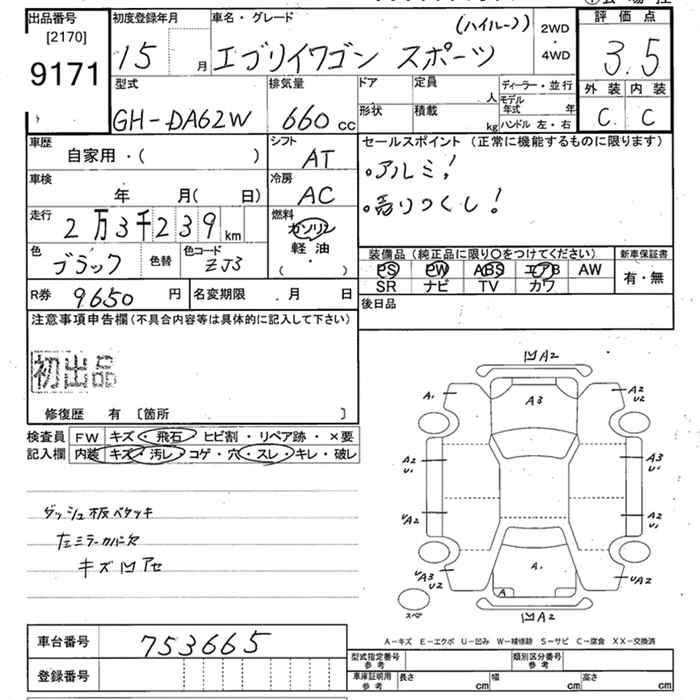 出品番号
[2170]
9171
初度登録年月
15 月
車名・グレード
(ハイルーフ)
エブリイワゴン スポーツ
2WD
・
4WD
評価点
3.5
外装 内装
C C
型式
GH-DA62W
排気量
660 cc
ドア
形状
定員
人
積載
kg
ディーラー・並行
モデル年式 年
ハンドル 左・右
車歴
自家用・( )
シフト
AT
車検
年 月( 日)
冷房
AC
走行
2万3千239 km
燃料
ガソリン
軽油
( )
色
ブラック
色替
色コード
ZJ3
R券 9650 円
名変期限 . 月 日
セールスポイント (正常に機能するものに限ります)
・アルミ!
・売りつくし!
装備品(純正品に限り○をつけてください)
PS PW ABS エアB AW
SR ナビ TV カワ
新車保証書
有・無
後日品
注意事項申告欄(不具合内容等は具体的に記入して下さい)
初出品
修復歴 有 [箇所 ]
検査員
記入欄
FW キズ・飛石・ヒビ割・リペア跡・×要
内装 キズ・汚レ・コゲ・穴・スレ・キレ・破レ
ダッシュ板ベタツキ
左ミラーカバー欠
キズ凹アセ
凹A2
A1
A3
A2
U2
A2
U1
A3
U1
UA2
A2
U1
UA3
U2
A1
UA2
A
スペア
凹A2
A-キズ E-エクボ U-凹み W-補修跡 S-サビ C-腐食 XX-交換済
車台番号 753665
登録番号
型式指定番号
参考
類別区分番号
参考
車庫証明用
参考
長さ cm 幅 cm 高さ cm